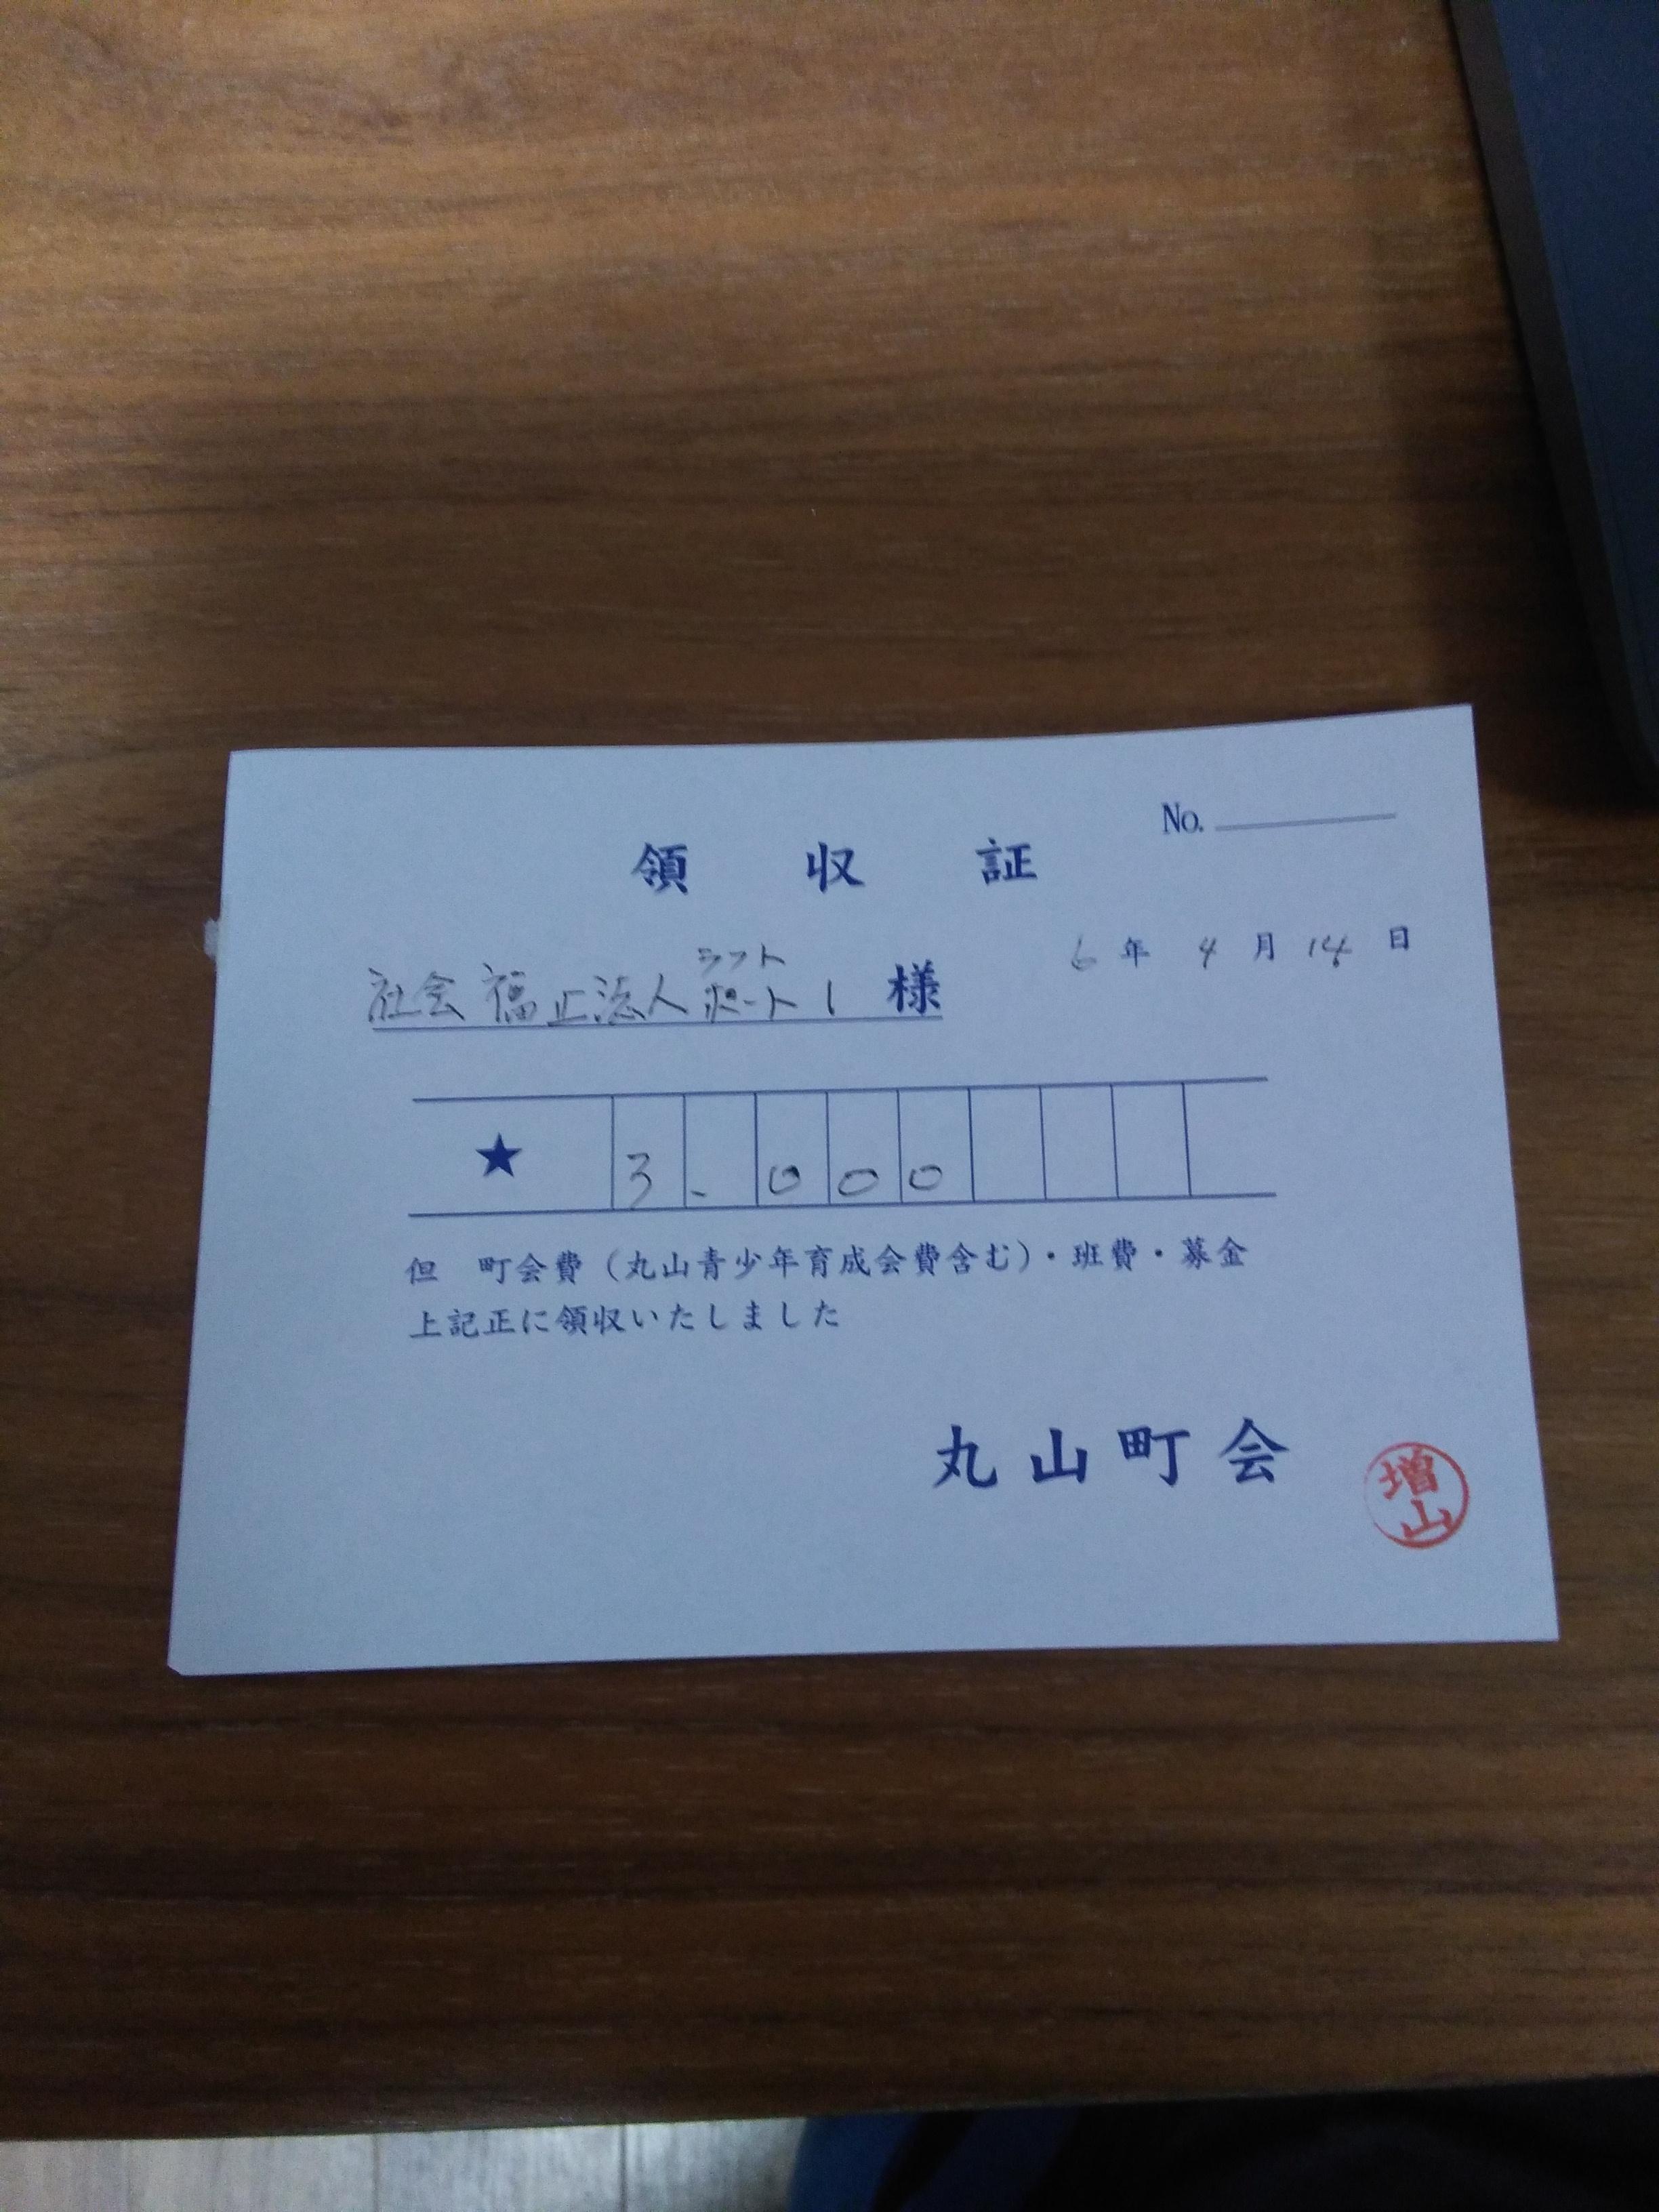 No.
領収証
6年4月14日
ラフト
社会福祉法人ポート1様
★ 3.000
但 町会費（丸山青少年育成会費含む）・班費・募金
上記正に領収いたしました
丸山町会
増山